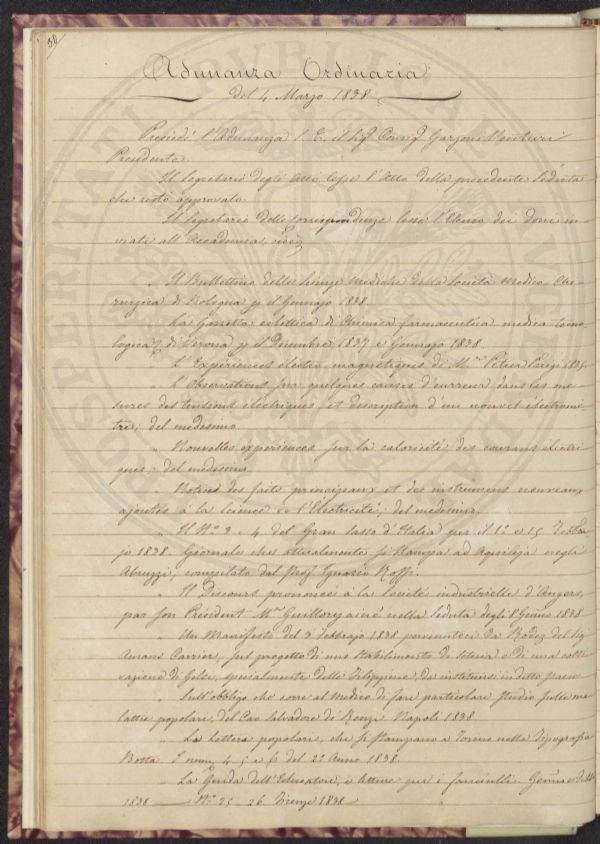 30
Adunanza Ordinaria
del 4 Marzo 1838
Presiedé l'Adunanza S. E. il Sig. Consig. Garzoni Venturi
Presidente.
Il Segretario degli Atti lesse l'Atto della precedente Seduta
che restò approvato.
Il Segretario delle corrispondenze lesse l'Elenco dei doni in-
viati all'Accademia,
" Il Bullettino delle Scienze Mediche della Società Medico-Chi-
rurgica di Bologna p. il Gennajo 1838.
" La Gazzetta eclettica di Chimica farmaceutica medica-tecno-
logica &. di Verona p. il Decembre 1837 e Gennajo 1838.
" L'Expériences électro-magnétiques de M. Pétrer Parigi
" L'Observations sur quelques causes d'erreur dans les me-
sures des tensions électriques, et description d'un nouvel électromè-
tre; del medesimo.
" Nouvelles expériences sur la caloricité des courans électri-
ques; del medesimo.
" Notices des faits principaux et des instrumens nouveaux
ajoutés à la science de l'Electricité; del medesimo.
" Il N.° 3 e 4 del Gran Sasso d'Italia per il 1° e 15 Febbra-
jo 1838. Giornale che attualmente si stampa ad Aquila negli
Abruzzi, compilato dal Prof. Ignazio Rozzi.
" Il Discours prononcé à la Société industrielle d'Angers,
par son Président M. Guillory ainé nella Seduta degli 8 Genn. 1838
" Un Manifesto del 3 Febbrajo 1838 pervenuteci da Rodez del Sig.
Amans Carrier, sul progetto di uno stabilimento di seteria e di una colti-
vazione di Gelsi, specialmente delle Filippine, da instituirsi in detto paese
" Sull'obbligo che corre al Medico di fare particolare studio sulle ma-
lattie popolari, del Cav. Salvadore de Renzi. Napoli 1838.
" La Lettura popolari, che si stampano a Torino nella Tipografia
Botta. I num. 4. 5 e 6 del 2° Anno 1838.
" La Guida dell'Educatore, e letture per i fanciulli.
1838 — N.i 25-26 Firenze 1838